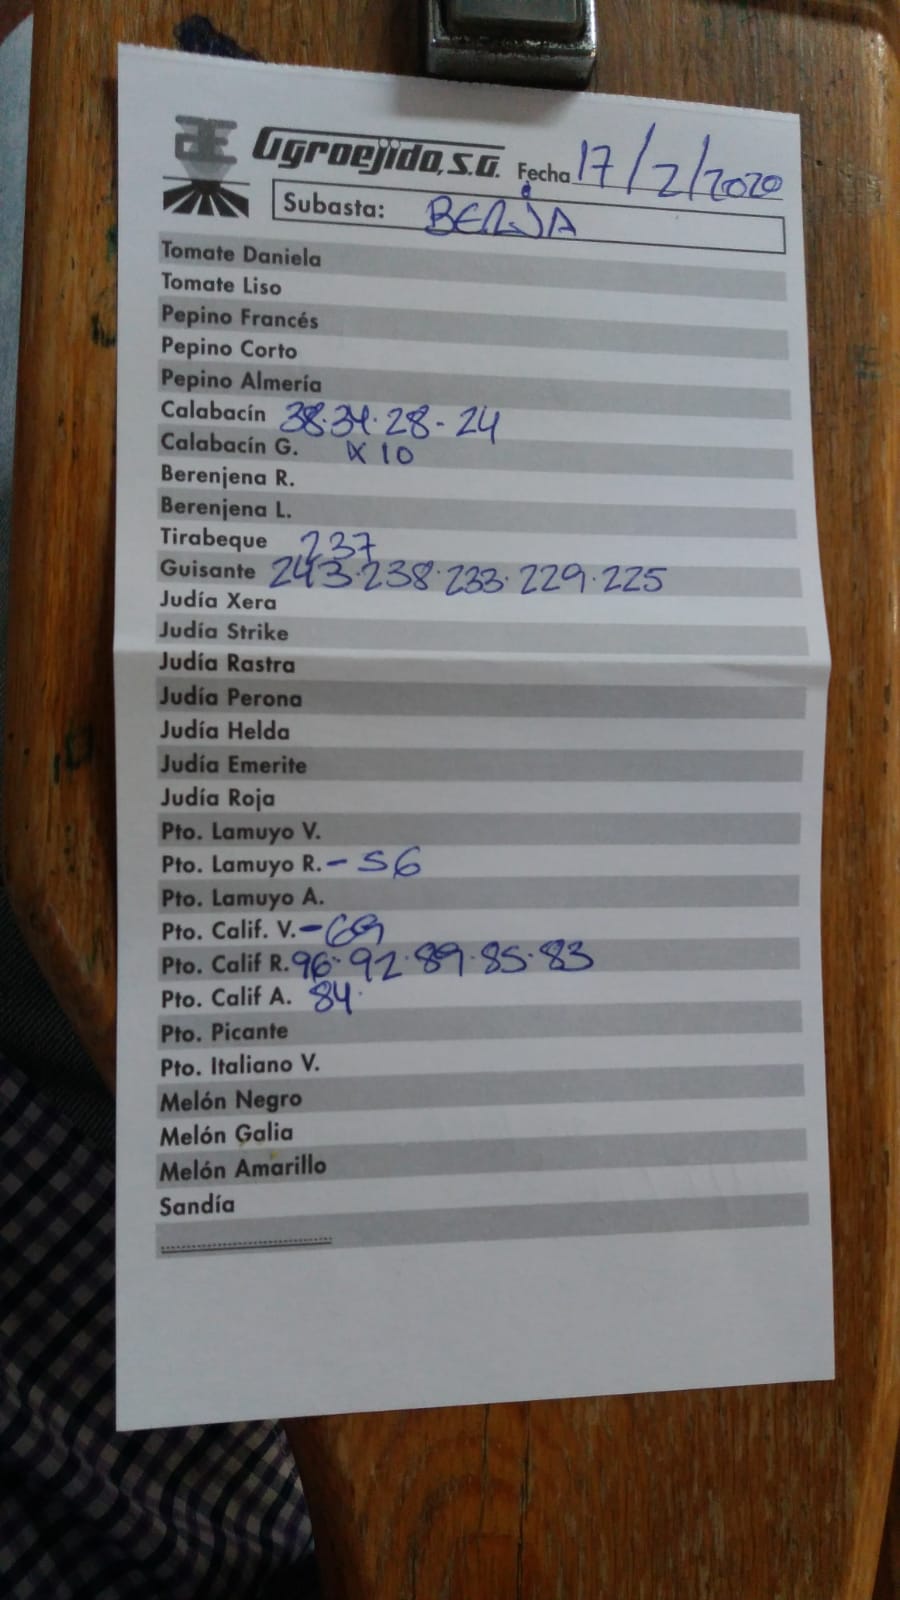 Agroejido, S.A. Fecha 17/2/2020
Subasta: BERJA
Tomate Daniela
Tomate Liso
Pepino Francés
Pepino Corto
Pepino Almería
Calabacín 38·34·28-24
Calabacín G. 10
Berenjena R.
Berenjena L.
Tirabeque 237
Guisante 243·238·233·229·225
Judía Xera
Judía Strike
Judía Rastra
Judía Perona
Judía Helda
Judía Emerite
Judía Roja
Pto. Lamuyo V.
Pto. Lamuyo R. - 56
Pto. Lamuyo A.
Pto. Calif. V. - 69
Pto. Calif R. 96·92·89·85·83
Pto. Calif A. 84·
Pto. Picante
Pto. Italiano V.
Melón Negro
Melón Galia
Melón Amarillo
Sandía